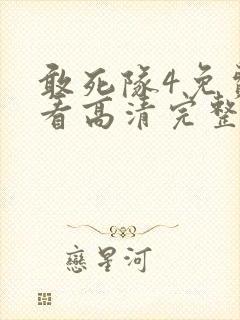 敢死隊4免
看高清完整
戀星河